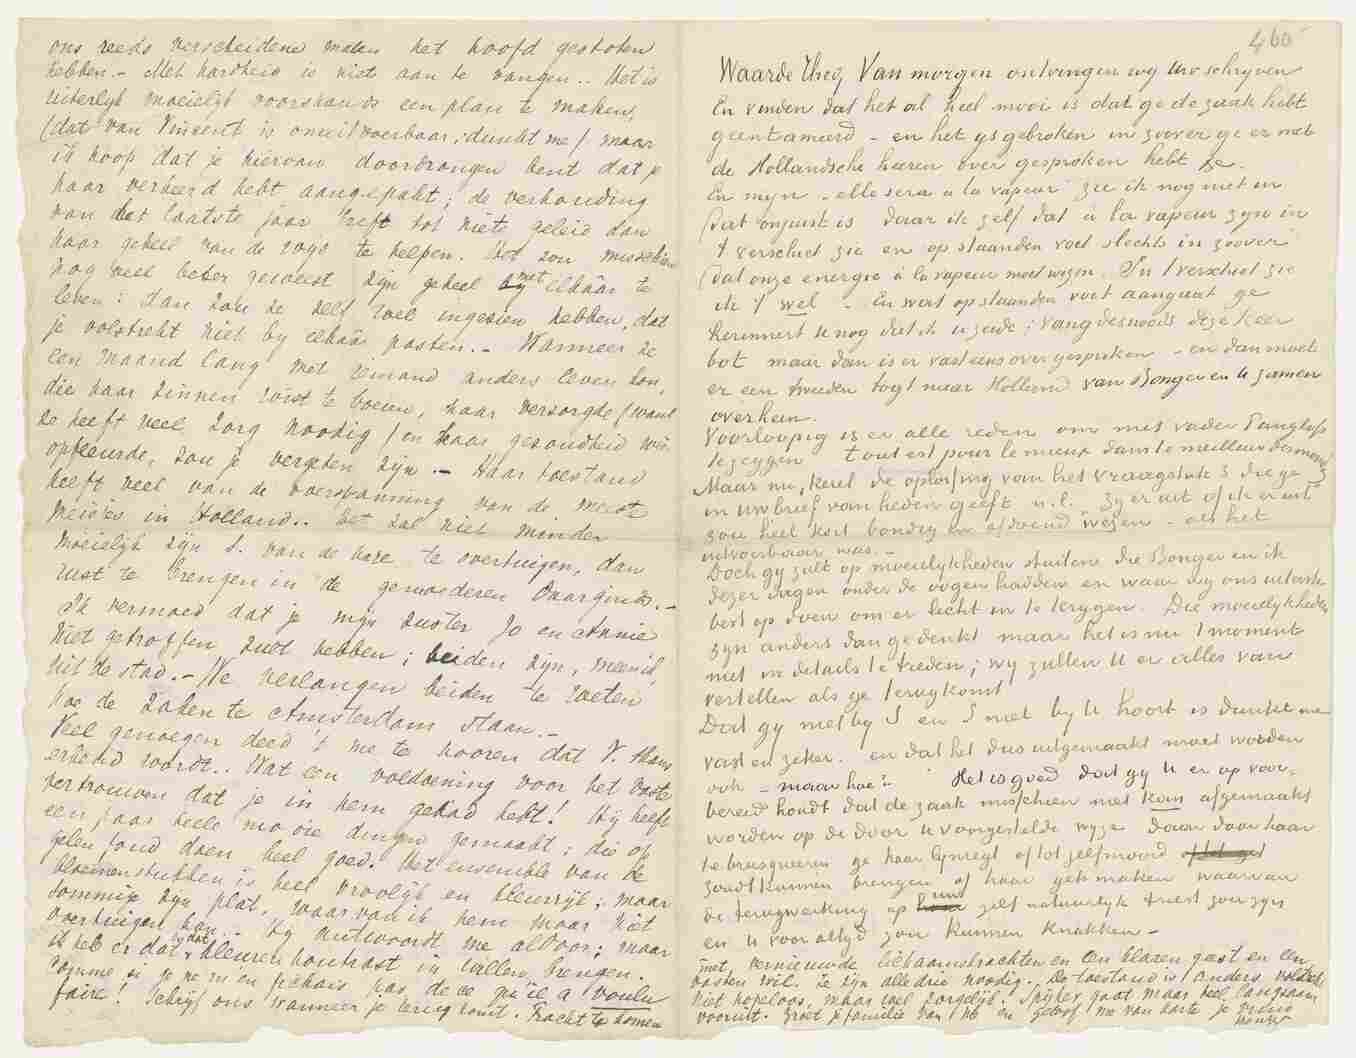 ons reeds verscheidene malen het hoofd gestoten
hebben. – Met hardheid is niet aan te vangen.. Het is
uiterlijk moeielijk voorshands een plan te maken,
(dat van Vincent is onuitvoerbaar, dunkt me) maar
ik hoop dat je hiervan doordrongen bent dat je
haar verkeerd hebt aangepakt; de verhouding
van het laatste jaar heeft tot niets geleid dan
haar geheel van de wijs te helpen. Het zou misschien
nog veel beter geweest zijn geheel met elkâar te
leven: dan zou ze zelf wel ingezien hebben, dat
je volstrekt niet bij elkâar pasten. – Wanneer ze
een maand lang met iemand anders leven kon,
die haar zinnen wist te boeien, haar verzorgde (want
ze heeft veel zorg noodig) en haar gezondheid wat
opbeurde, zou je vergeten zijn. – Haar toestand
heeft veel van de overspanning van de meeste
meisjes in Holland.. Het zal niet minder
moeielijk zijn S. van de hare te overtuigen, dan
rust te brengen in de gemoederen daarginds. –
Ik vermoed dat je mijn zuster Jo en Annie
niet getroffen zult hebben; beiden zijn, meen ik,
uit de stad. – We verlangen beiden te weten
hoe de zaken te Amsterdam staan. –
Veel genoegen deed 't me te hooren dat V. thans
erkend wordt.. Wat een voldoening voor het vaste
vertrouwen dat je in hem gehad hebt! Hij heeft
een paar heele mooie dingen gemaakt; die op
gelen fond doen heel goed. Het ensemble van de
bloemenstukken is heel vroolijk en kleurrijk; maar
sommige zijn plat, waarvan ik hem maar niet
overtuigen kan.. – Hij antwoordt me altoos: maar
ik heb er dat & dat kleurenkontrast in willen brengen.
Comme si je ne m'en fichais pas de ce qu'il a voulu
faire! Schrijf ons wanneer je terug komt. Tracht te komen
460
Waarde Theo, Van morgen ontvingen wij Uw schrijven
En vinden dat het al heel mooi is dat ge de zaak hebt
geentameerd – en het ijs gebroken in zoover ge er met
de Hollandsche heeren over gesproken hebt.
En mijn – elle sera à la vapeur – zie ik nog niet in
dat onjuist is daar ik zelf dat à la vapeur zijn in
't verschiet zie en op staanden voet slechts in zoover
dat onze energie à la vapeur moet wezen. In 't verschiet zie
ik 't wel – En wat op staanden voet aangaat ge
herinnert U nog dat ik U zeide: vang desnoods deze keer
bot maar dan is er vast eens over gesproken – en dan moet
er een tweeden togt naar Holland van Bonger en U zamen
overheen.
Voorloopig is er alle reden om met vader Pangloss
te zeggen tout est pour le mieux dans le meilleur des mondes
Maar nu, heel de oplossing van het vraagstuk S die ge
in uw brief van heden geeft n.l. "zij er uit of ik er uit"
zou heel kort bondig en afdoend wezen – als het
uitvoerbaar was. –
Doch gij zult op moeielijkheden stuiten die Bonger en ik
dezer dagen onder de oogen hadden en waar wij ons uiterste
best op doen om er licht in te krijgen. Die moeielijkheden
zijn anders dan ge denkt maar het is nu 't moment
niet in details te treden; wij zullen U er alles van
vertellen als ge terugkomt
Dat gij niet bij S en S niet bij U hoort is dunkt me
vast en zeker. en dat het dus uitgemaakt moet worden
ook – maar hoe? Het is goed dat gij U er op voor-
bereid houdt dat de zaak misschien niet kan afgemaakt
worden op de door U voorgestelde wijze daar door haar
te brusqueeren ge haar ligtweg of tot zelfmoord
zoudt kunnen brengen of haar gek maken waarvan
de terugwerking op U zelf natuurlijk triest zou zijn
en U voor altijd zou kunnen knakken –
met vernieuwde lichaamskrachten en
wil. Ze zijn alle drie noodig. De toestand is anders volstrekt
niet hopeloos, maar wel zorgelijk. Spijker gaat maar heel langzaam
vooruit. Groet je familie van me en geloof me van harte je vriend